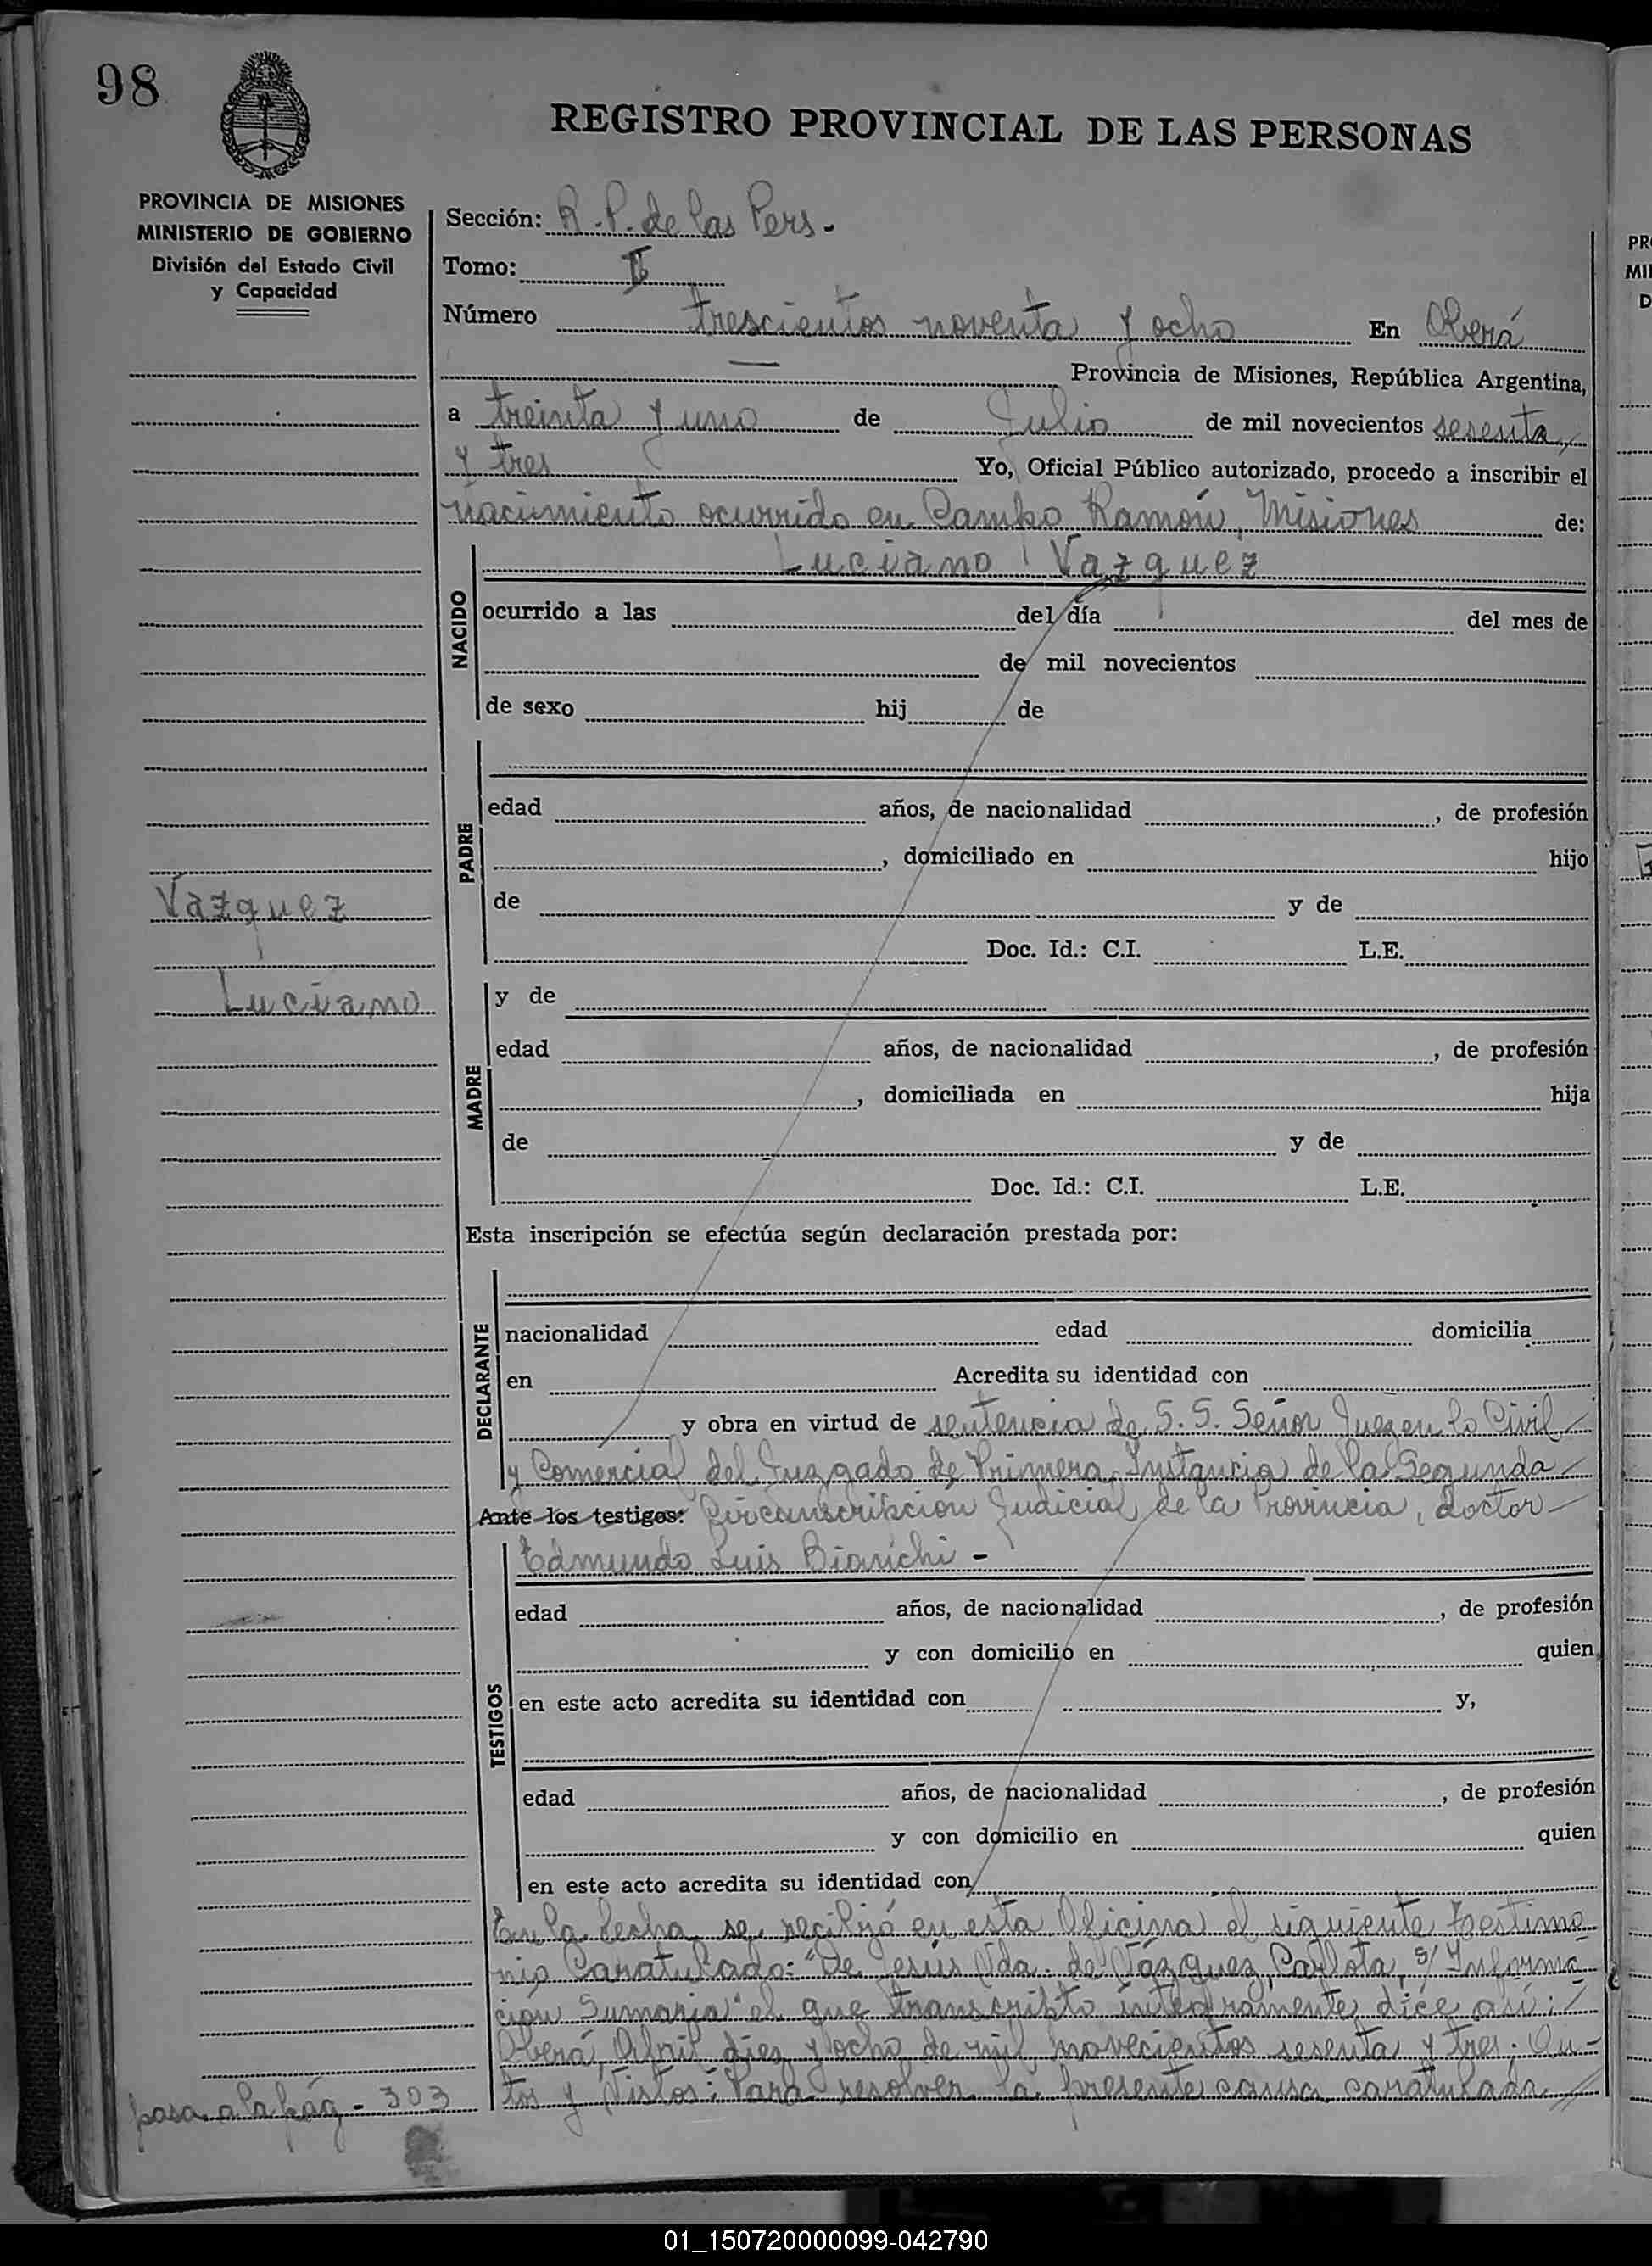 98
REGISTRO PROVINCIAL DE LAS PERSONAS
PROVINCIA DE MISIONES
MINISTERIO DE GOBIERNO
División del Estado Civil
y Capacidad
Sección: R. P. de las Pers.
Tomo: II
Número trescientos noventa y ocho En Oberá
Provincia de Misiones, República Argentina,
a treinta y uno de Julio de mil novecientos sesenta
y tres Yo, Oficial Público autorizado, procedo a inscribir el
nacimiento ocurrido en Campo Ramón, Misiones de:
Luciano Vazquez
NACIDO
ocurrido a las del día del mes de
de mil novecientos
de sexo hij de
PADRE
edad años, de nacionalidad , de profesión
, domiciliado en hijo
de y de
Doc. Id.: C.I. L.E.
Vazquez
Luciano
MADRE
y de
edad años, de nacionalidad , de profesión
, domiciliada en hija
de y de
Doc. Id.: C.I. L.E.
Esta inscripción se efectúa según declaración prestada por:
DECLARANTE
nacionalidad edad domicilia
en Acredita su identidad con
y obra en virtud de sentencia de S. S. Señor Juez en lo Civil
y Comercial del Juzgado de Primera Instancia de la Segunda
Ante los testigos: Circunscripción Judicial de la Provincia, doctor
Edmundo Luis Bianchi -
TESTIGOS
edad años, de nacionalidad , de profesión
y con domicilio en quien
en este acto acredita su identidad con y,
edad años, de nacionalidad , de profesión
y con domicilio en quien
en este acto acredita su identidad con
En la fecha se recibió en esta Oficina el siguiente testimo
nio Caratulado: "De Jesús Vda. de Vázquez, Carlota, s/ Informa
ción Sumaria" el que transcripto integramente dice así:
Oberá, Abril diez y ocho de mil novecientos sesenta y tres. Au-
tos y Vistos: Para resolver la presente causa caratulada
pasa a la pág - 303
01_150720000099-042790